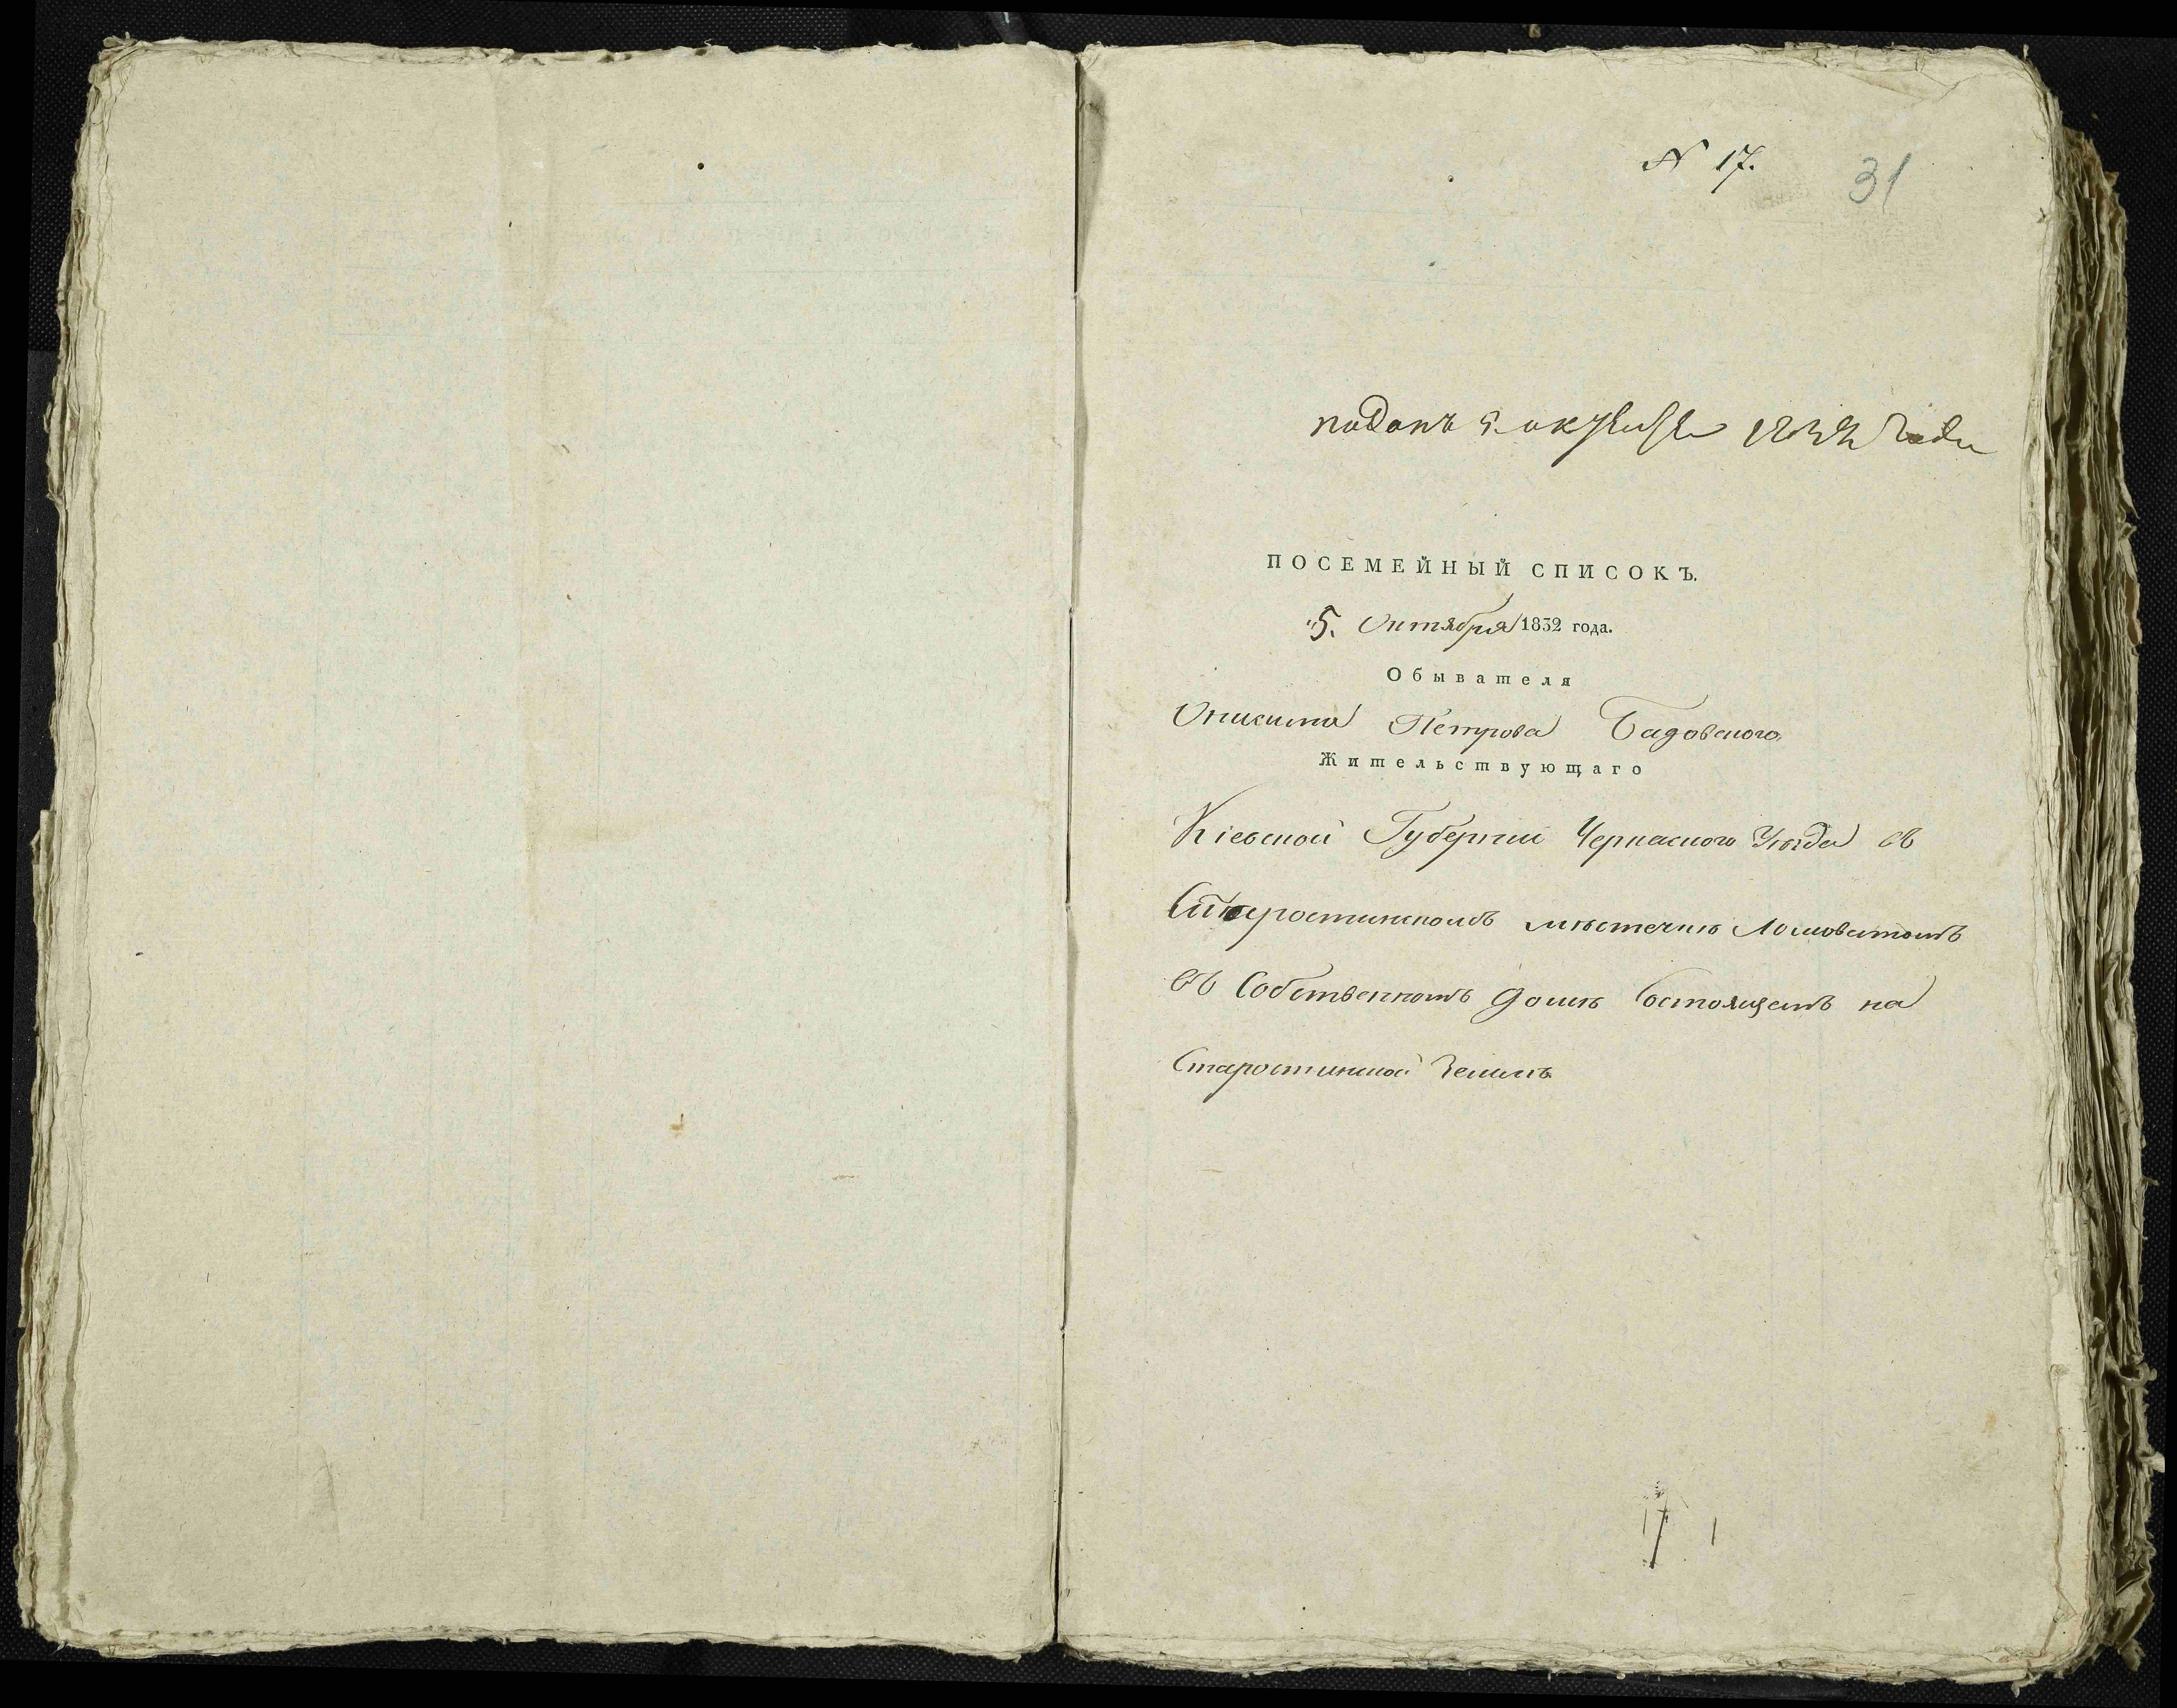 N 17.
31
поданъ 5. октября 1832 года
ПОСЕМЕЙНЫЙ СПИСОКЪ.
"5. Октября 1832 года.
Обывателя
Онисима Петрова Бадовского
Жительствующаго
Кіевской Губерніи Черкаского Уѣзда въ
Старостинскомъ мѣстечкѣ Ломоватомъ
въ Собственномъ домѣ Состоящемъ на
Старостинской Землѣ